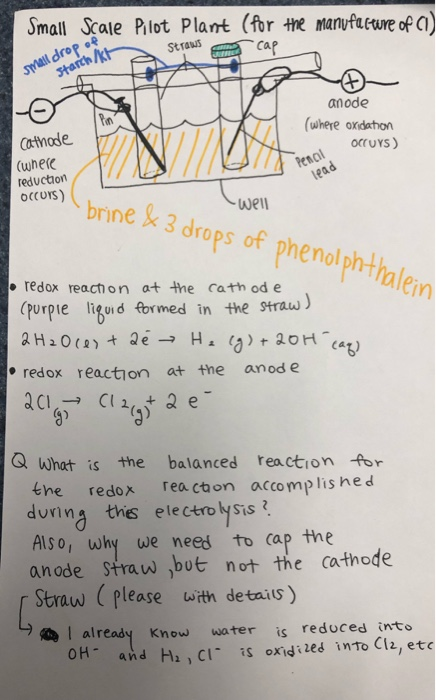 Small Scale Pilot Plant (for the manufacture of Cl)
small drop of
starch/KI
Straws
cap
Pin
cathode
(where
reduction
occurs)
anode
(where oxidation
occurs)
Pencil
lead
well
brine & 3 drops of phenolphthalein
• redox reaction at the cathode
(purple liquid formed in the straw)
2H₂O(l) + 2e⁻ → H₂ (g) + 2OH⁻(aq)
• redox reaction at the anode
2Cl(g) → Cl₂(g) + 2e⁻
Q What is the balanced reaction for
the redox reaction accomplished
during this electrolysis?
Also, why we need to cap the
anode straw, but not the cathode
Straw (please with details)
I already know water is reduced into
OH⁻ and H₂, Cl⁻ is oxidized into Cl₂, etc